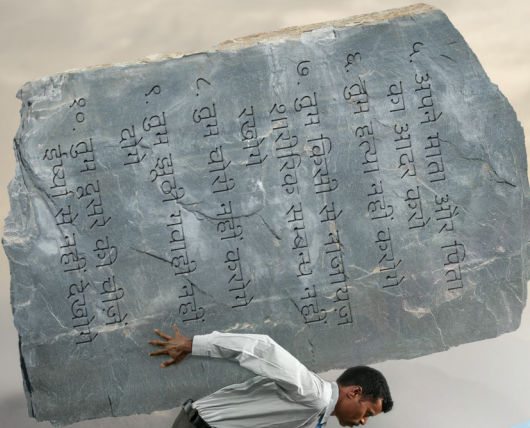 ५. अपने माता और पिता
का आदर करो
६. तुम हत्या नहीं करोगे
७. तुम किसी से नाजायज़
शारीरिक सम्बन्ध नहीं
रखोगे
८. तुम चोरी नहीं करोगे
९. तुम झूठी गवाही नहीं
दोगे
१०. तुम दूसरे की चीजें
ईर्ष्या से नहीं देखोगे